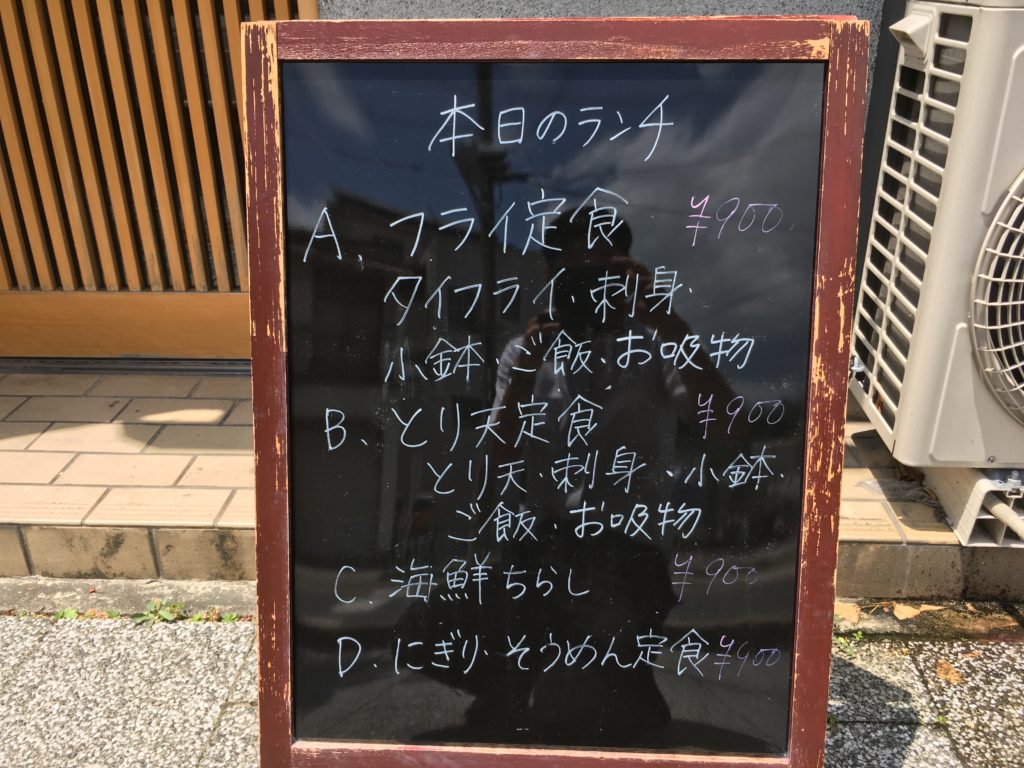 本日のランチ
A、フライ定食 ¥900
タイフライ・刺身・
小鉢・ご飯・お吸物
B、とり天定食 ¥900
とり天・刺身・小鉢・
ご飯・お吸物
C、海鮮ちらし ¥900
D、にぎり・そうめん定食 ¥900